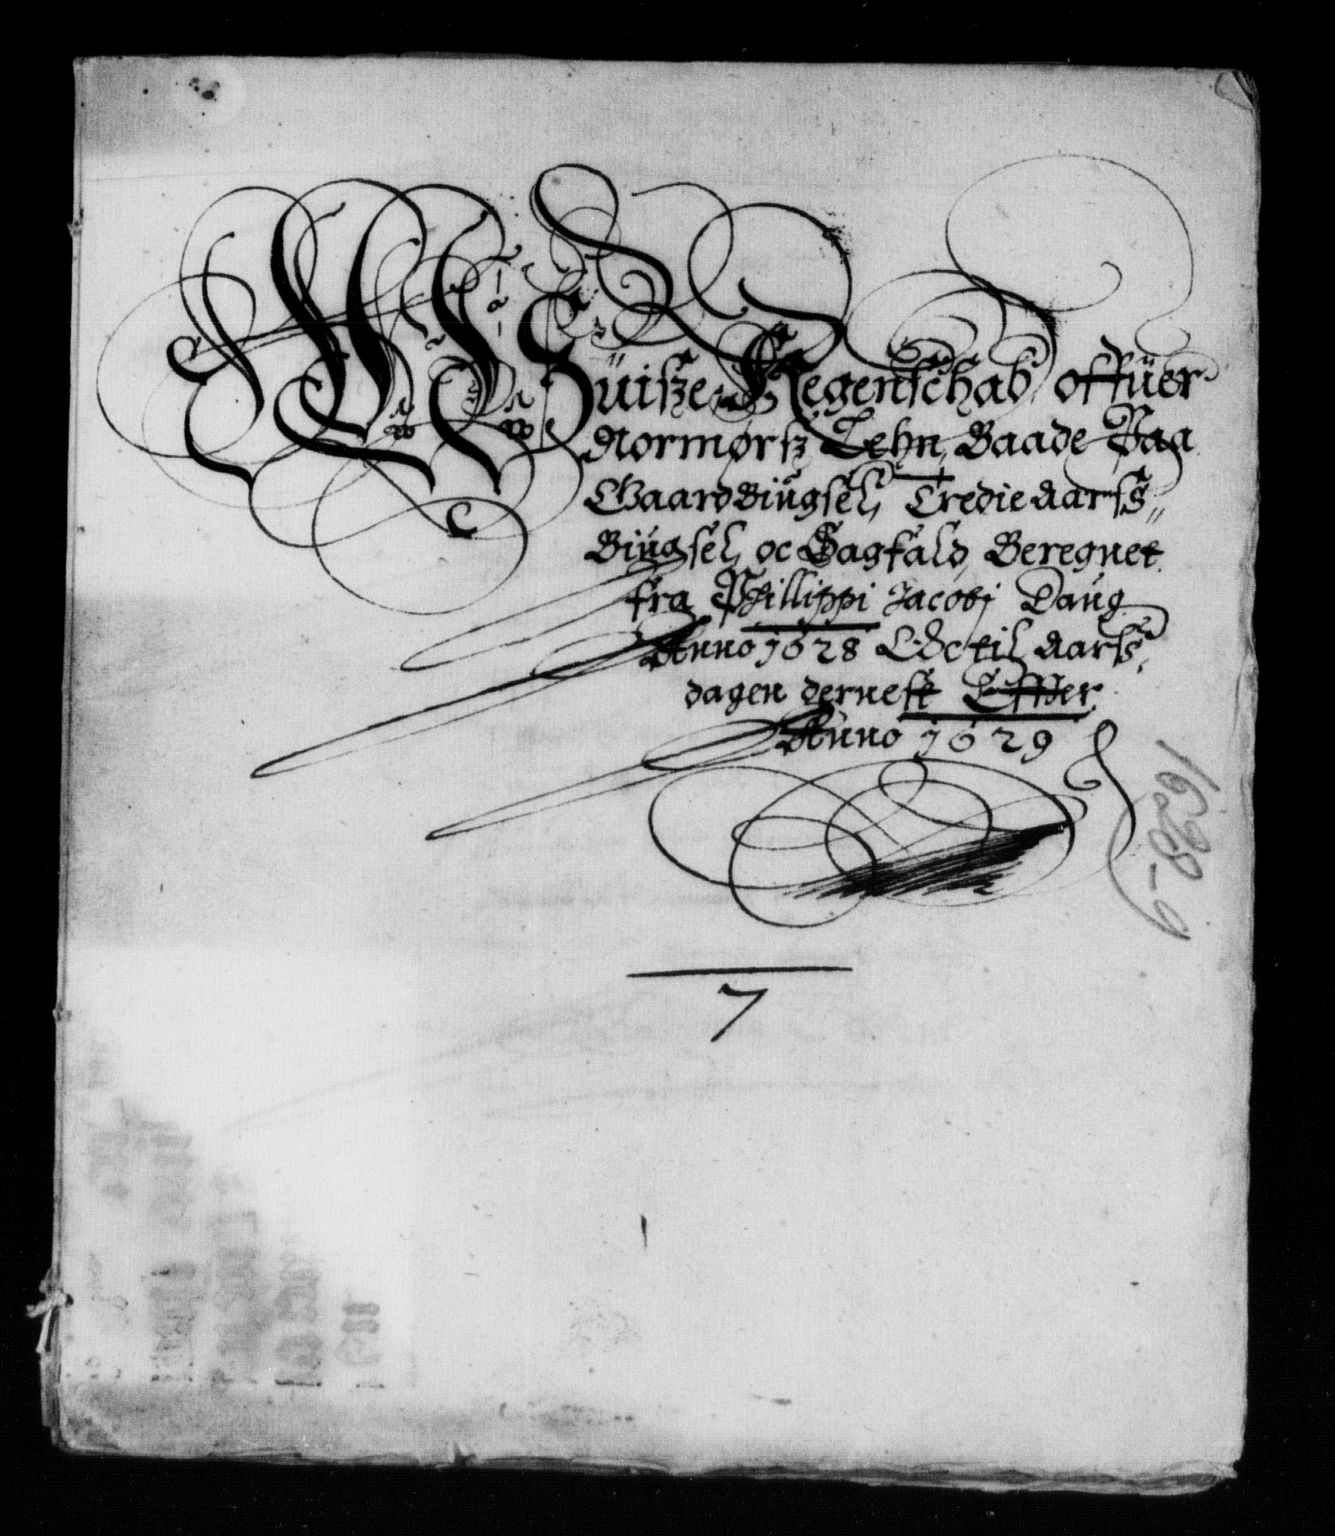 Wüisze Regenschab offüer
Normørsz Lehn, Baade Paa
Gaard Biügsel, Tredie Aarss
Biügsel, oc Sagfald, Beregnet
fra Phillippi Jacobj Daug
Anno 1628 Och til Aarss
dagen dernest Effter
Anno 1629
1628-9
7